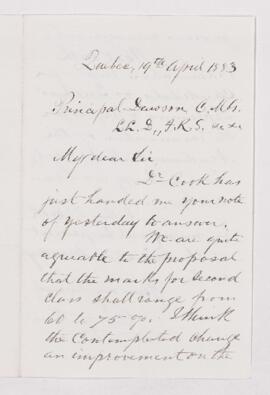 Quebec, 19th April 1883
Principal Dawson C.M.G.
LL.D., F.R.S. &c &c
My dear Sir
Dr Cook has
just handed me your note
of yesterday to answer.
We are quite
agreeable to the proposal
that the marks for second
class shall range from
60 to 75 %. I think
the contemplated change
an improvement on the